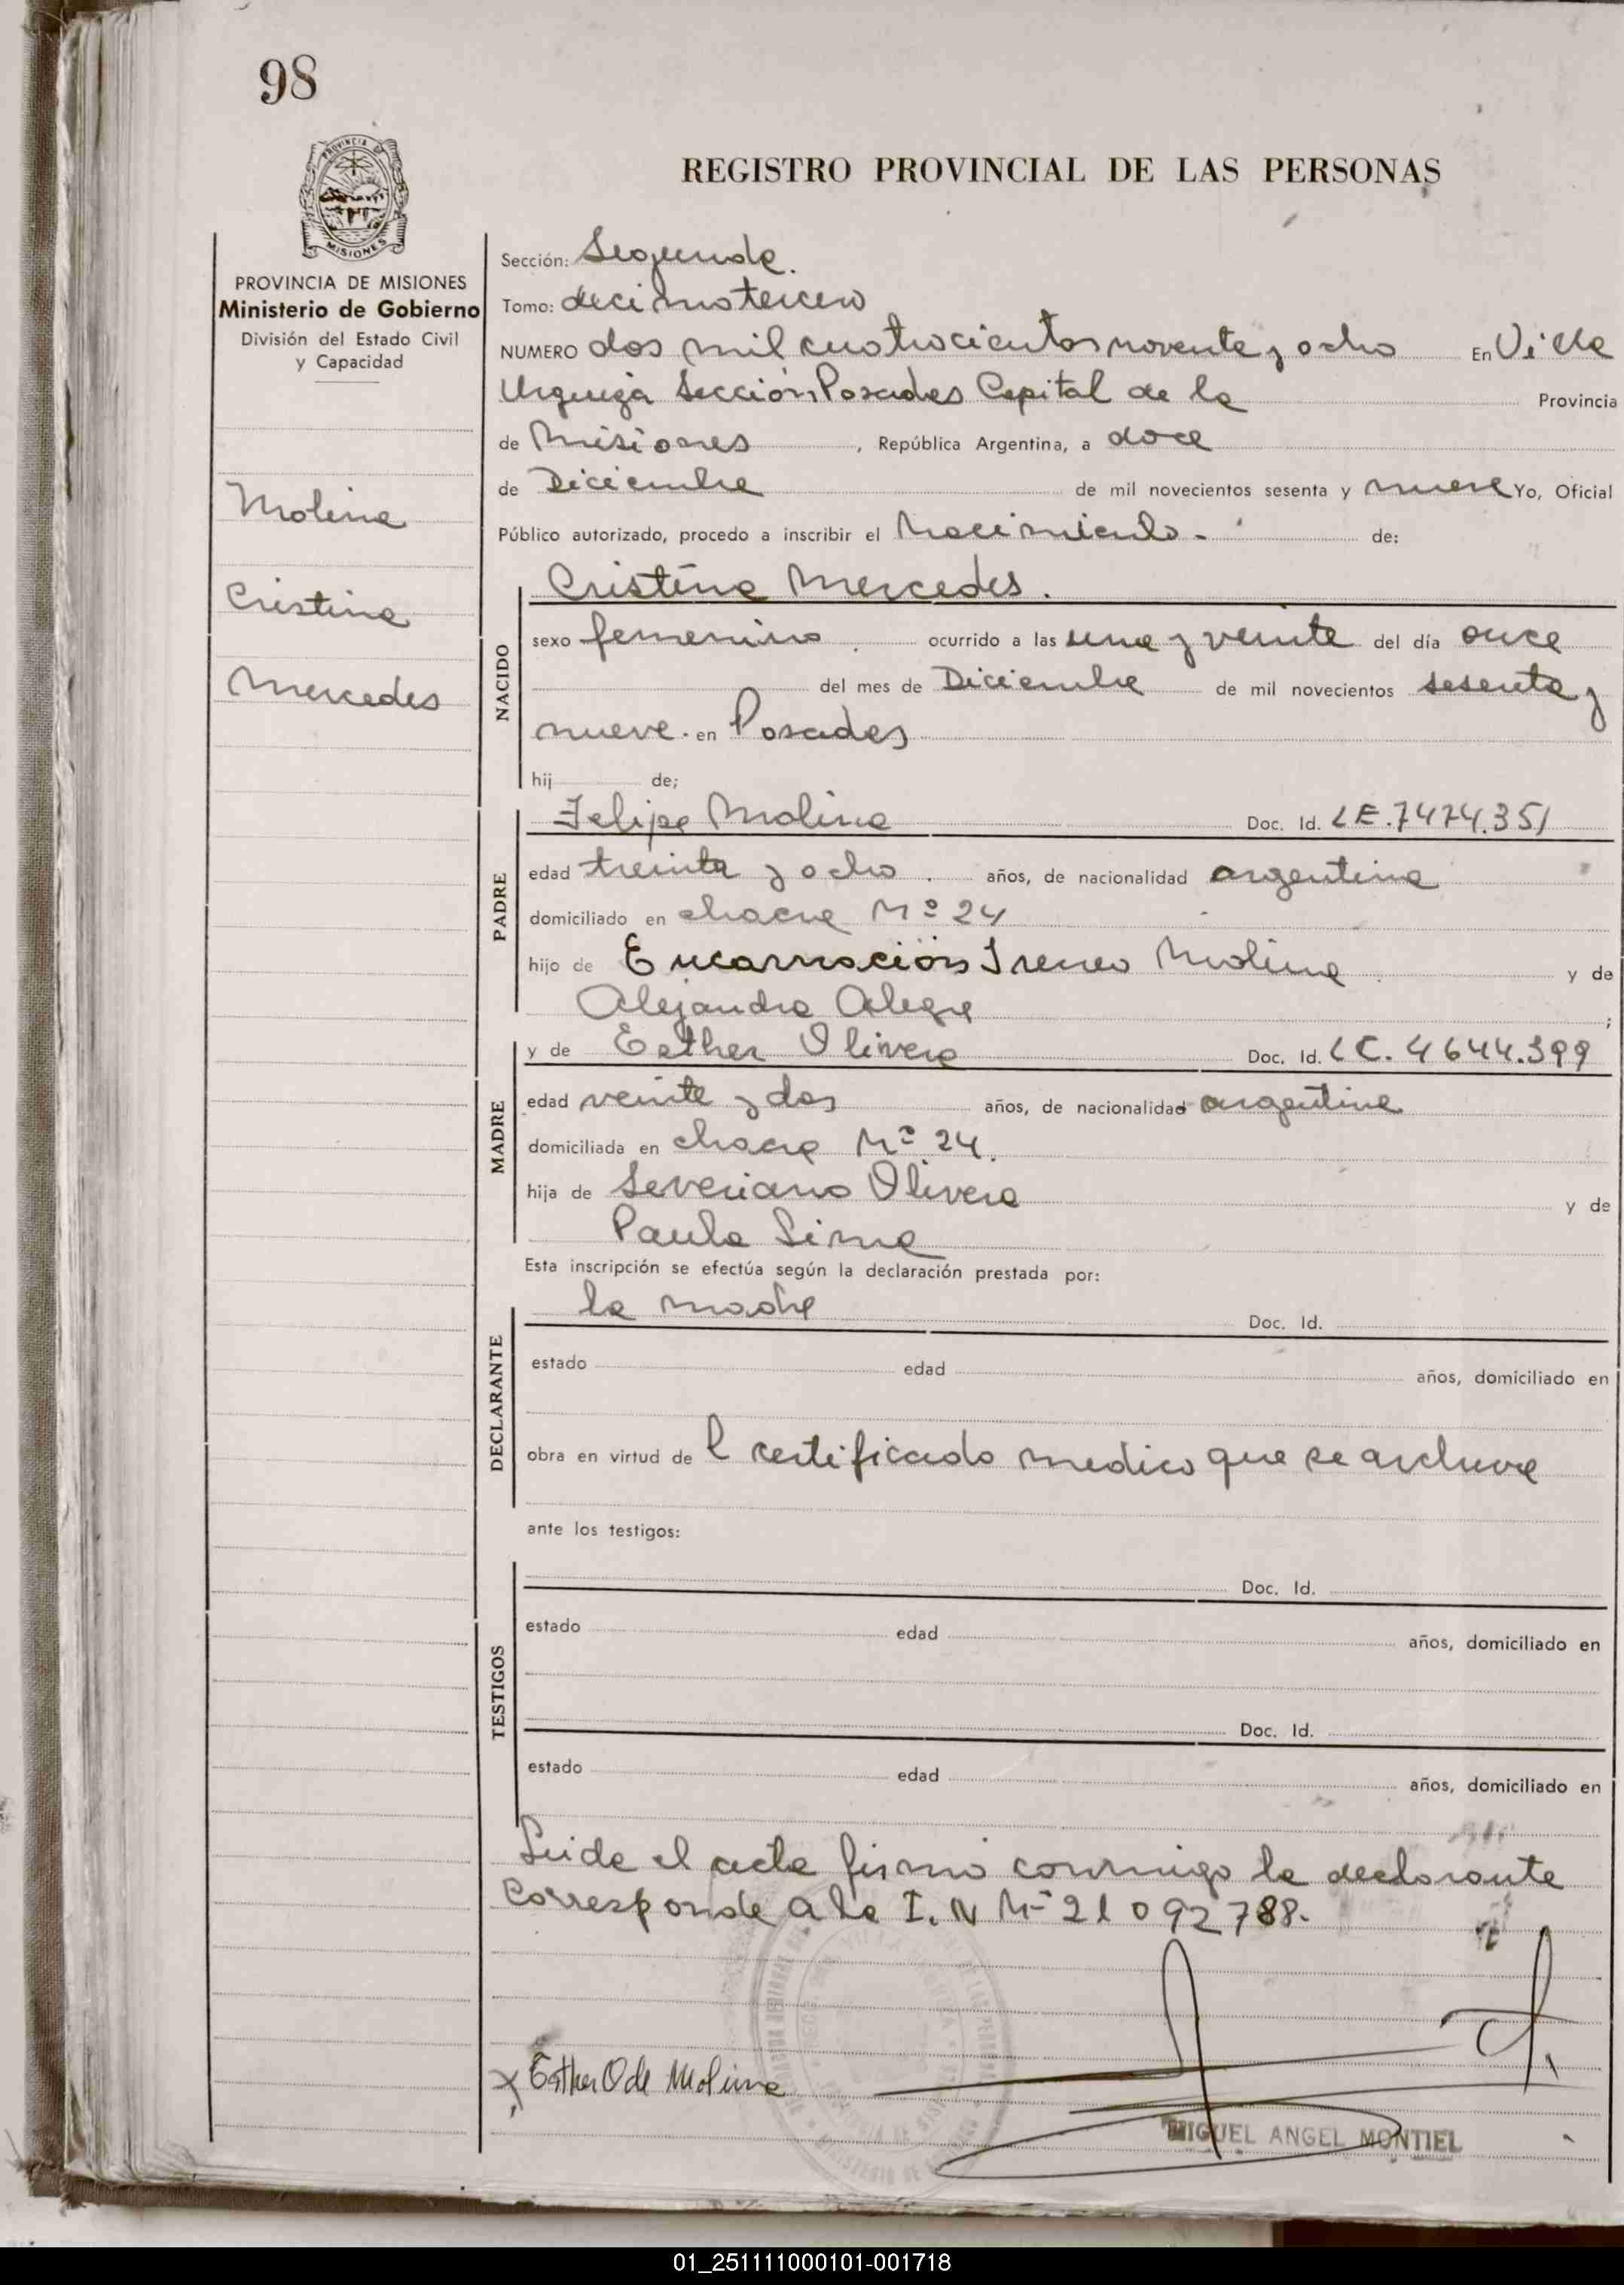 98
PROVINCIA DE
MISIONES
REGISTRO PROVINCIAL DE LAS PERSONAS
PROVINCIA DE MISIONES
Ministerio de Gobierno
División del Estado Civil
y Capacidad
Molina
Cristina
Mercedes
Sección: Segunda.
Tomo: decimotercero
NUMERO dos mil cuatrocientos noventa y ocho En Villa
Urquiza Sección Posadas Capital de la Provincia
de Misiones, República Argentina, a doce
de Diciembre de mil novecientos sesenta y nueve Yo, Oficial
Público autorizado, procedo a inscribir el Nacimiento - de:
NACIDO
Cristina Mercedes.
sexo femenino. ocurrido a las una y veinte del día once
del mes de Diciembre de mil novecientos sesenta y
nueve. en Posadas
hij de;
PADRE
Felipe Molina Doc. Id. LE.7474.351
edad treinta y ocho. años, de nacionalidad argentina
domiciliado en chacra Nº 24
hijo de Encarnación Ireneo Molina y de
Alejandra Alegre;
MADRE
y de Esther Olivera Doc. Id. LC. 4644.399
edad veinte y dos años, de nacionalidad argentina
domiciliada en chacra Nº 24.
hija de Severiano Olivera y de
Paula
Esta inscripción se efectúa según la declaración prestada por:
DECLARANTE
la madre Doc. Id.
estado edad años, domiciliado en
obra en virtud de l certificado medico que se archiva
ante los testigos:
TESTIGOS
Doc. Id.
estado edad años, domiciliado en
Doc. Id.
estado edad años, domiciliado en
Leida el acta firmó conmigo la declarante
Corresponde a la I. N Nº 21 092788.
Esther O de Molina
MIGUEL ANGEL MONTIEL
01_251111000101-001718